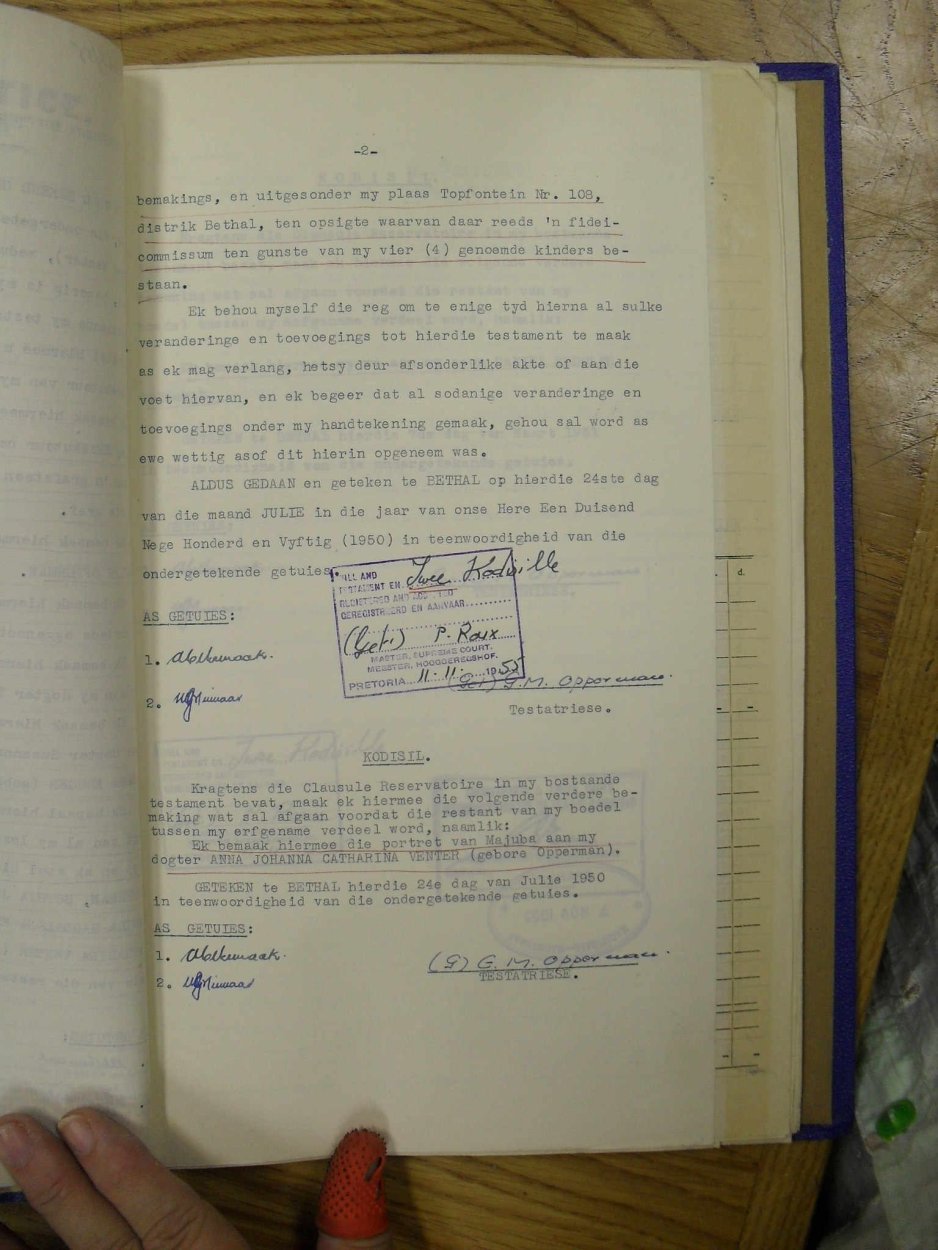 -2-
bemakings, en uitgesonder my plaas Topfontein Nr. 108,
distrik Bethal, ten opsigte waarvan daar reeds 'n fidei-
commissum ten gunste van my vier (4) genoemde kinders be-
staan.
Ek behou myself die reg om te enige tyd hierna al sulke
veranderinge en toevoegings tot hierdie testament te maak
as ek mag verlang, hetsy deur afsonderlike akte of aan die
voet hiervan, en ek begeer dat al sodanige veranderinge en
toevoegings onder my handtekening gemaak, gehou sal word as
ewe wettig asof dit hierin opgeneem was.
ALDUS GEDAAN en geteken te BETHAL op hierdie 24ste dag
van die maand JULIE in die jaar van onse Here Een Duisend
Nege Honderd en Vyftig (1950) in teenwoordigheid van die
ondergetekende getuies
WILL AND
TESTAMENT EN Twee Kodisille
REGISTERED AND
GEREGISTREERD EN AANVAAR
(Get) P. Roux
MASTER, SUPREME COURT.
MEESTER, HOOGGEREGSHOF.
PRETORIA 11.11. 1955
AS GETUIES:
1.
2.
(get) G.M. Opperman.
Testatriese.
KODISIL.
Kragtens die Clausule Reservatoire in my bostaande
testament bevat, maak ek hiermee die volgende verdere be-
making wat sal afgaan voordat die restant van my boedel
tussen my erfgename verdeel word, naamlik:
Ek bemaak hiermee die portret van Majuba aan my
dogter ANNA JOHANNA CATHARINA VENTER (gebore Opperman).
GETEKEN te BETHAL hierdie 24e dag van Julie 1950
in teenwoordigheid van die ondergetekende getuies.
AS GETUIES:
1.
2.
(G) G. M. Opperman.
TESTATRIESE.
d.